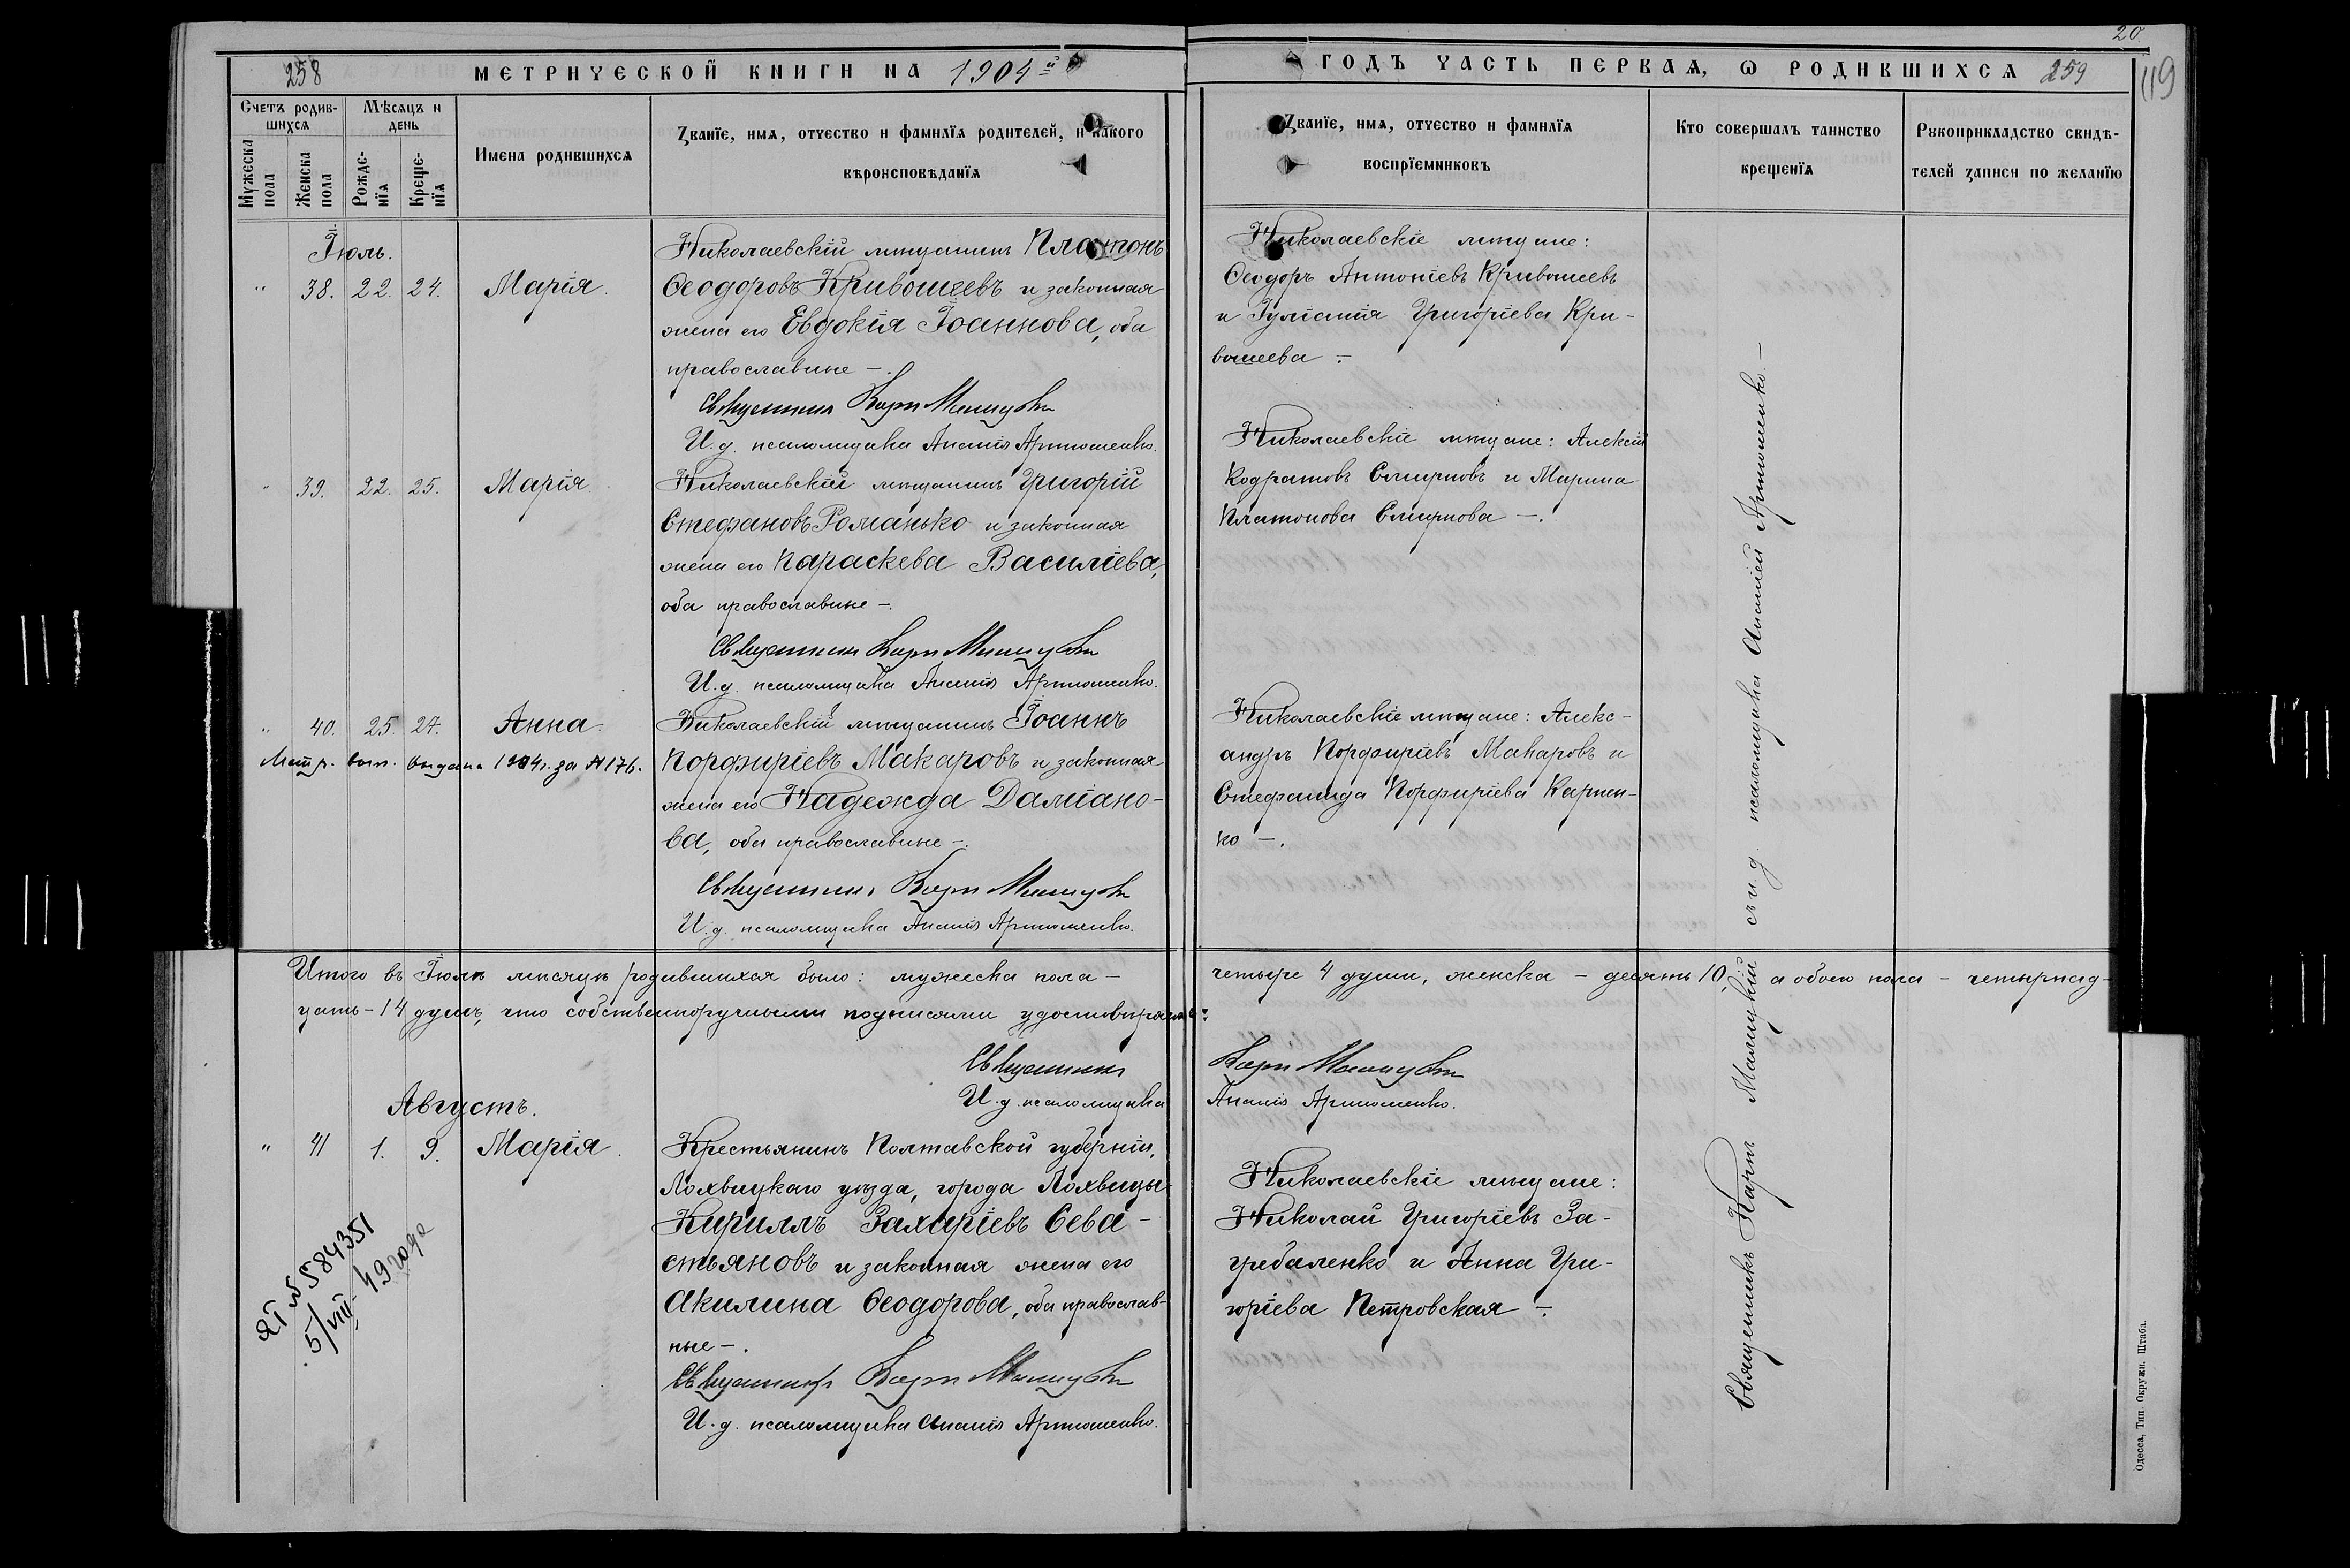 20
258
МЕТРИЧЕСКОЙ КНИГИ НА 1904й
ГОДЪ ЧАСТЬ ПЕРВАЯ, Ѡ РОДИВШИХСЯ 259
119
Счетъ родив-
шихся
Мѣсяцъ и
день
Мужеска
пола
Женска
пола
Рожде-
нїя
Креще-
нїя
Имена родившихся
Званїе, имя, отчество и фамилїя родителей, и какого
вѣроисповѣданїя
Званїе, имя, отчество и фамилїя
воспрїемниковъ
Кто совершалъ таинство
крещенїя
Рукоприкладство свидѣ-
телей записи по желанїю
Іюль.
" 38. 22. 24. Марія.
Николаевскій мѣщанинъ Платонъ
Ѳеодоровъ Кривошеевъ и законная
жена его Евдокія Іоаннова, оба
православные –.
Священникъ Карпъ Малицкій
И. д. псаломщика Ананія Артюшенко.
Николаевскіе мѣщане:
Ѳеодоръ Антоніевъ Кривошеевъ
и Іуліанія Григоріева Кри-
вошеева –.
" 39. 22. 25. Марія.
Николаевскій мѣщанинъ Григорій
Стефановъ Романько и законная
жена его Параскева Василіева,
оба православные –.
Священникъ Карпъ Малицкій
И. д. псаломщика Ананія Артюшенко.
Николаевскіе мѣщане: Алексій
Кодратовъ Смирновъ и Марина
Платонова Смирнова –.
" 40. 25. 27. Анна.
Метр. вып. выдана 1904г. за №176.
Николаевскій мѣщанинъ Іоаннъ
Порфиріевъ Макаровъ и законная
жена его Надежда Даміано-
ва, оба православные –.
Священникъ Карпъ Малицкій
И. д. псаломщика Ананія Артюшенко.
Николаевскіе мѣщане: Алекс-
андръ Порфиріевъ Макаровъ и
Стефанида Порфиріева Карпен-
ко –.
Итого въ Іюлѣ мѣсяцѣ родившихся было: мужеска пола – четыре 4 души, женска – десять 10, а обоего пола – четырнад-
цать – 14 душъ, что собственноручными подписями удостовѣряемъ:
Священникъ Карпъ Малицкій
И. д. псаломщика Ананія Артюшенко.
Августъ.
" 41 1. 9. Марія.
Крестьянинъ Полтавской губерніи,
Лохвицкаго уѣзда, города Лохвицы
Кириллъ Захаріевъ Сева-
стьяновъ и законная жена его
Акилина Ѳеодорова, оба православ-
ные –.
Священникъ Карпъ Малицкій
И. д. псаломщика Ананія Артюшенко.
Николаевскіе мѣщане:
Николай Григоріевъ За-
гребаленко и Анна Гри-
горіева Петровская –.
ЯГ № 584351
5/VIII – 49 года
Священникъ Карпъ Малицкій съ и. д. псаломщика Ананіей Артюшенко –
Одесса, Тип. Окружн. Штаба.